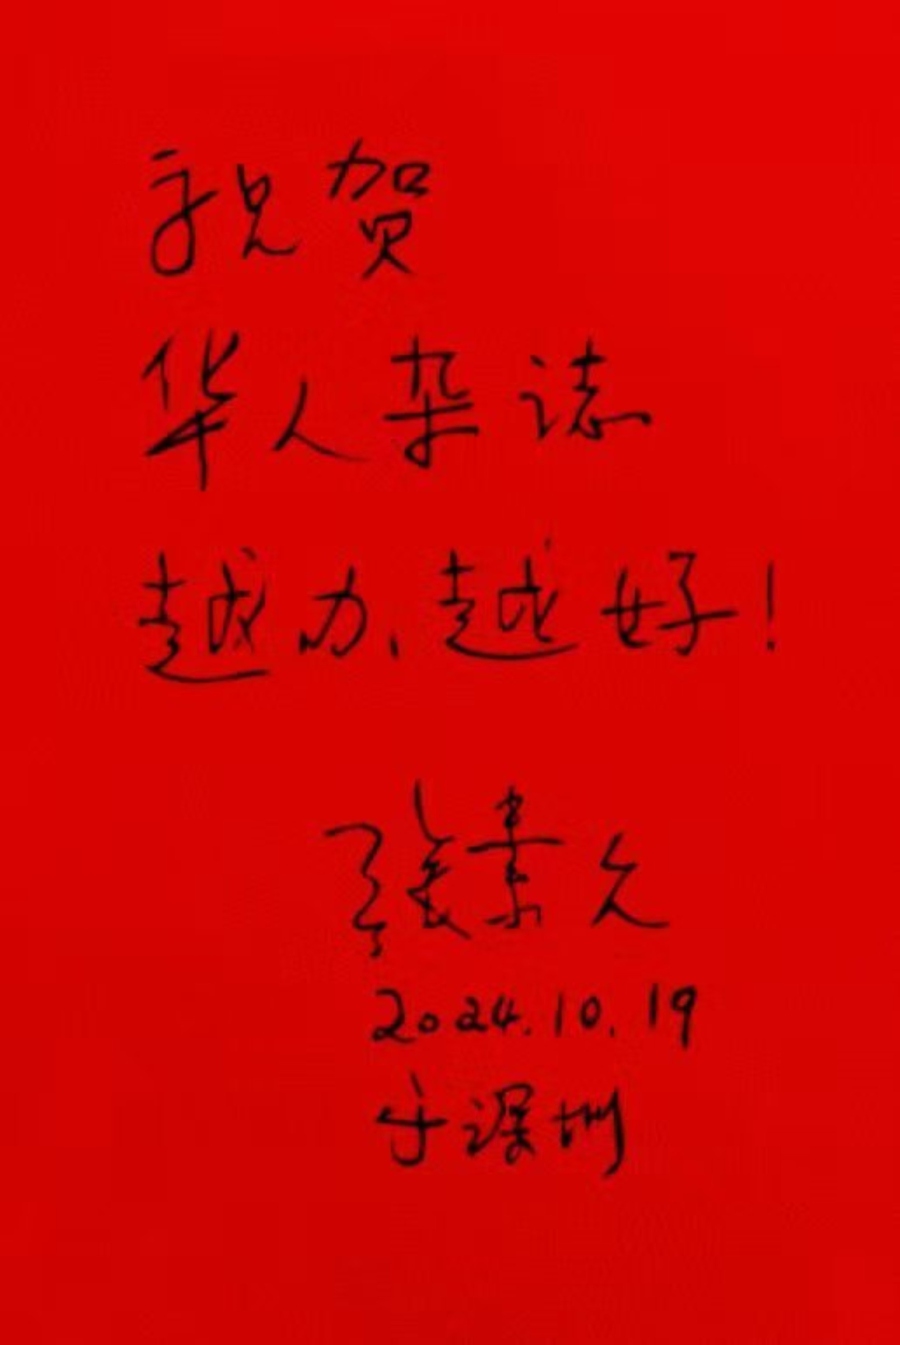 祝贺
华人杂誌
越办、越好！
张素久
2024.10.19
于深圳